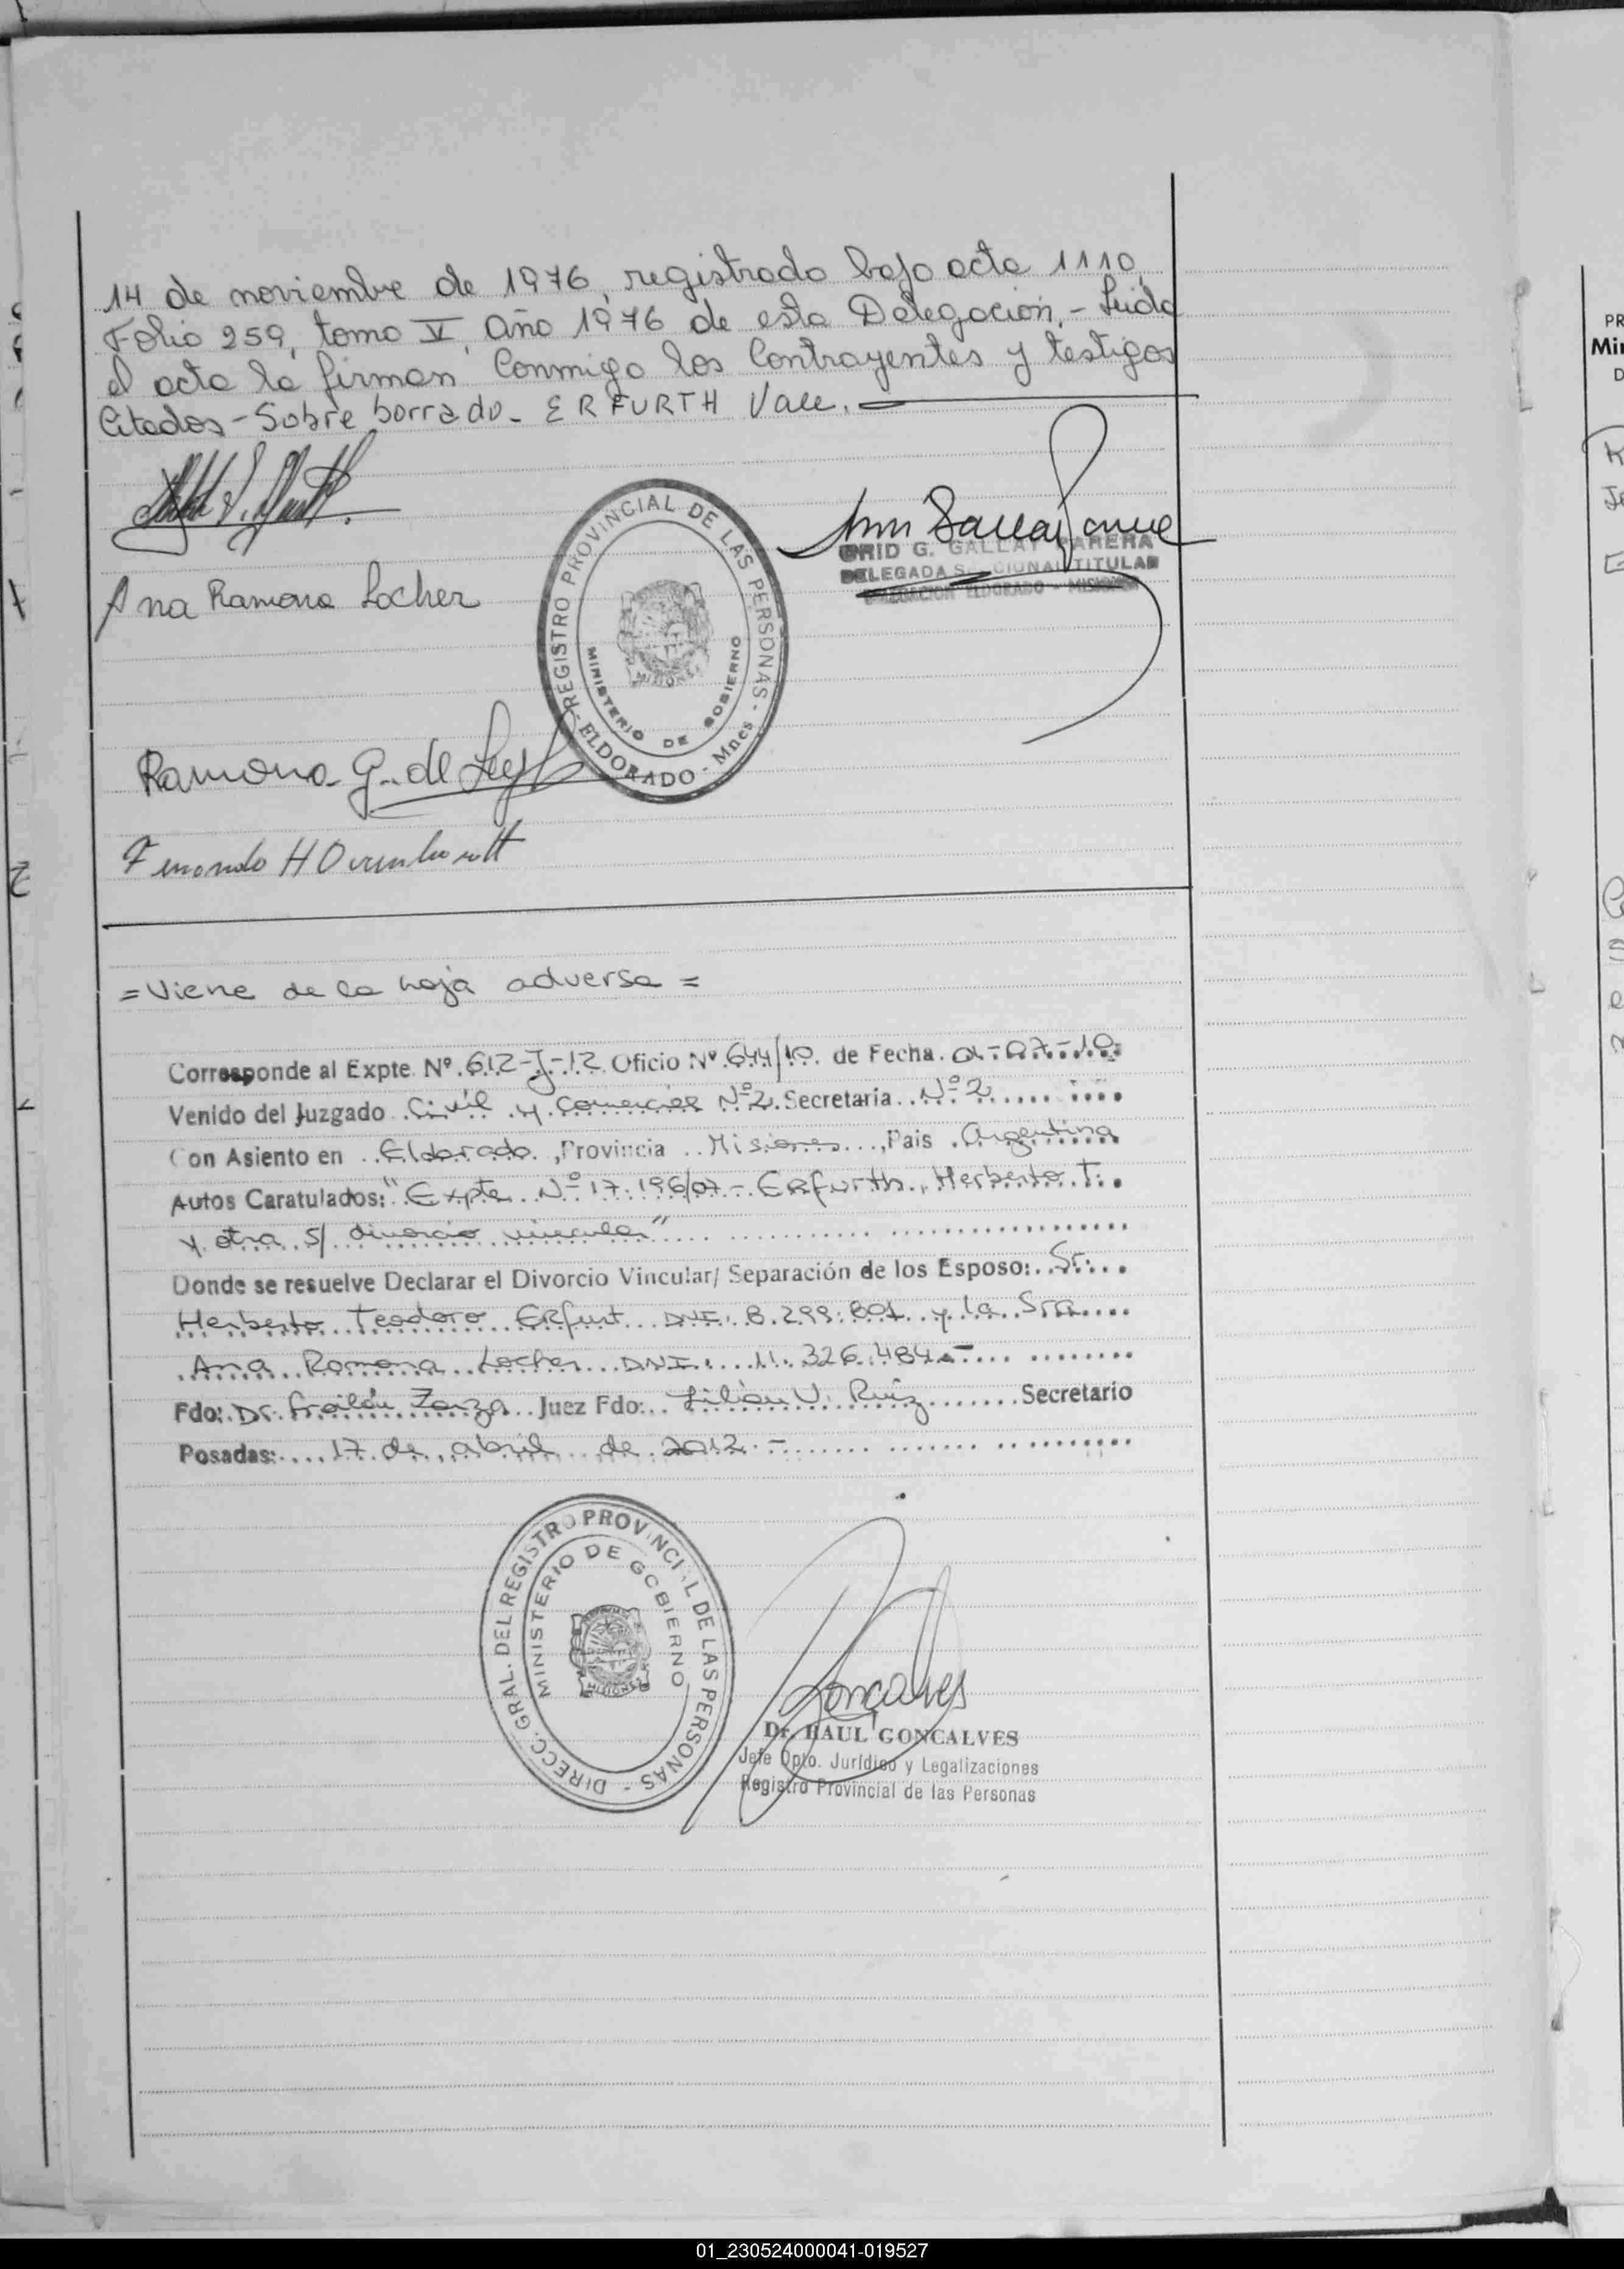 14 de noviembre de 1976, registrado bajo acta 1110,
Folio 259, tomo V, Año 1976 de esta Delegación.- Leida
el acta la firman Conmigo los Contrayentes y testigos
Citados - Sobre borrado - ERFURTH Vale.
Ana Ramona Locher
GRID G. GALLAY PARERA
DELEGADA SECCIONAL TITULAR
DELEGACION ELDORADO - MISIONES
REGISTRO PROVINCIAL DE LAS PERSONAS - ELDORADO - Mnes
MINISTERIO DE GOBIERNO
MISIONES
Ramona G. de
= Viene de la hoja adversa =
Corresponde al Expte Nº 612-J-12 Oficio Nº 644/10. de Fecha -07-10
Venido del Juzgado Civil y Comercial Nº2. Secretaria Nº 2
Con Asiento en Eldorado, Provincia Misiones, Pais Argentina
Autos Caratulados: "Expte Nº 17.196/07 - Erfurth, Herberto T.
y otra s/ divorcio vincular"
Donde se resuelve Declarar el Divorcio Vincular/ Separación de los Esposo: Sr.
Herberto Teodoro Erfurt DNI. 8.299.801 y la Sra
Ana Ramona Locher DNI. 11.326.484.-
Fdo: Dr. Froilán Zarza Juez Fdo: Lilian V. Ruiz Secretario
Posadas: 17 de abril de 2012.-
DIRECC. GRAL. DEL REGISTRO PROVINCIAL DE LAS PERSONAS
MINISTERIO DE GOBIERNO
MISIONES
Goncalves
Dr. RAUL GONCALVES
Jefe Dpto. Jurídico y Legalizaciones
Registro Provincial de las Personas
01_230524000041-019527